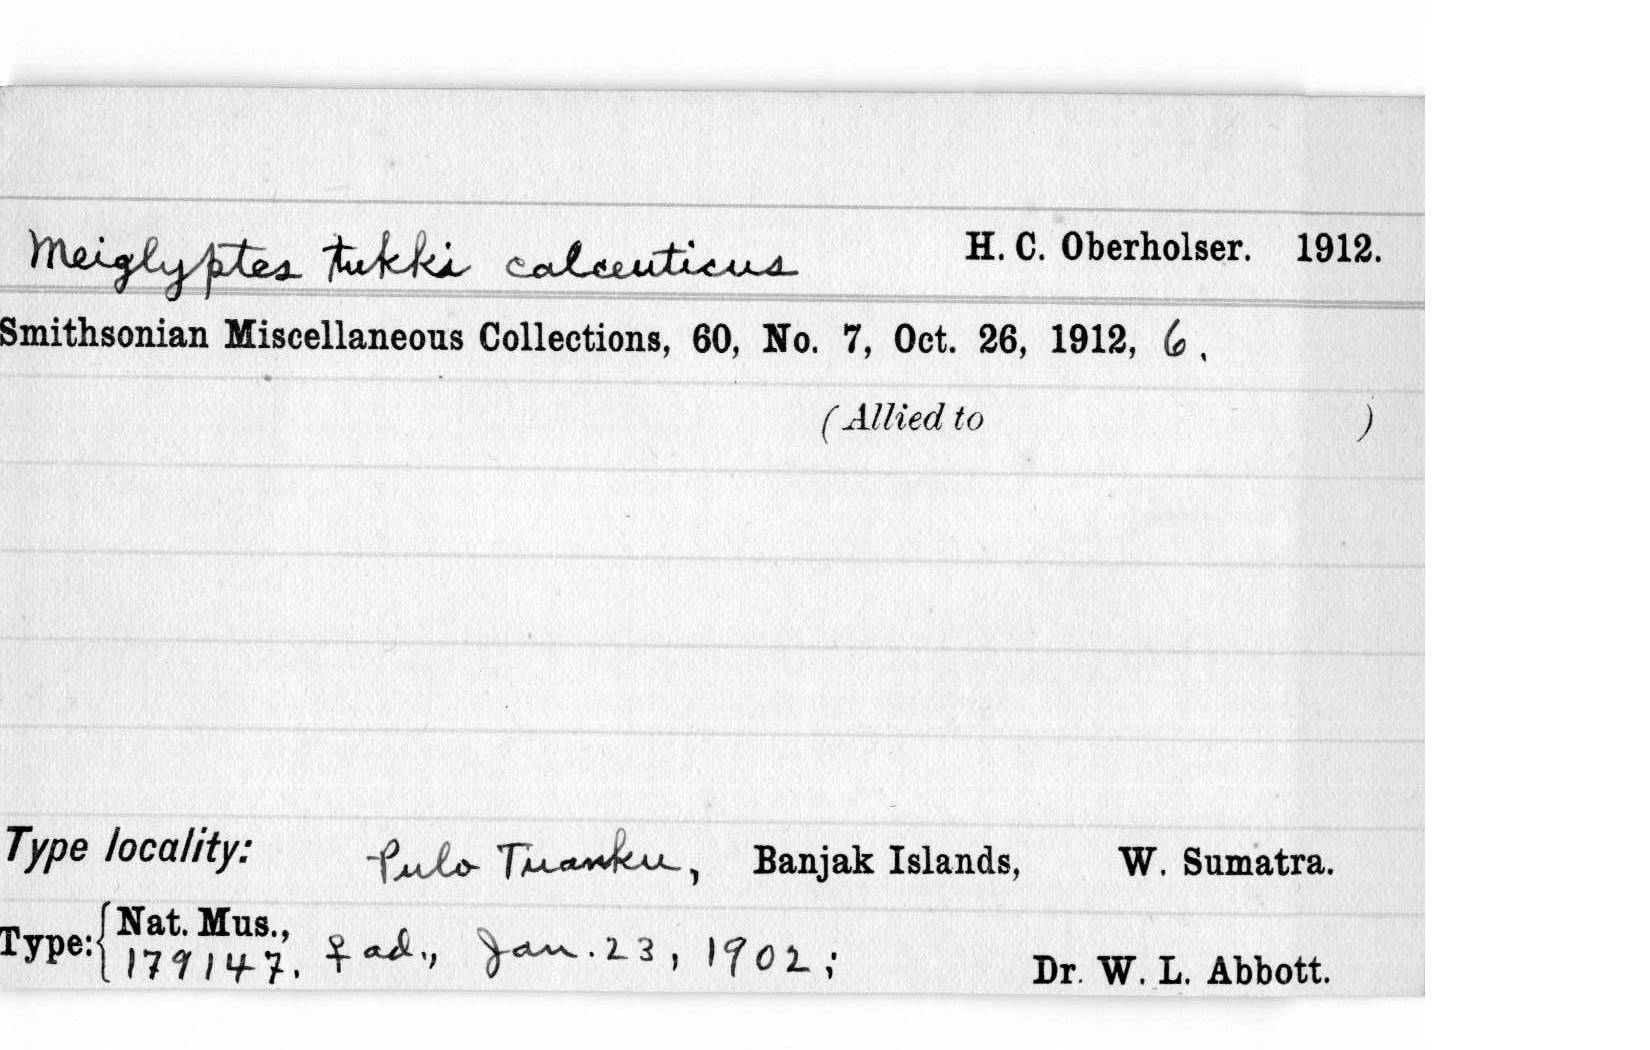 Meiglyptes tukki calceuticus H. C. Oberholser. 1912.
Smithsonian Miscellaneous Collections, 60, No. 7, Oct. 26, 1912, 6.
(Allied to )
Type locality: Pulo Tuanku, Banjak Islands, W. Sumatra.
Type: { Nat. Mus.,
179147. ♀ ad., Jan. 23, 1902; Dr. W. L. Abbott.